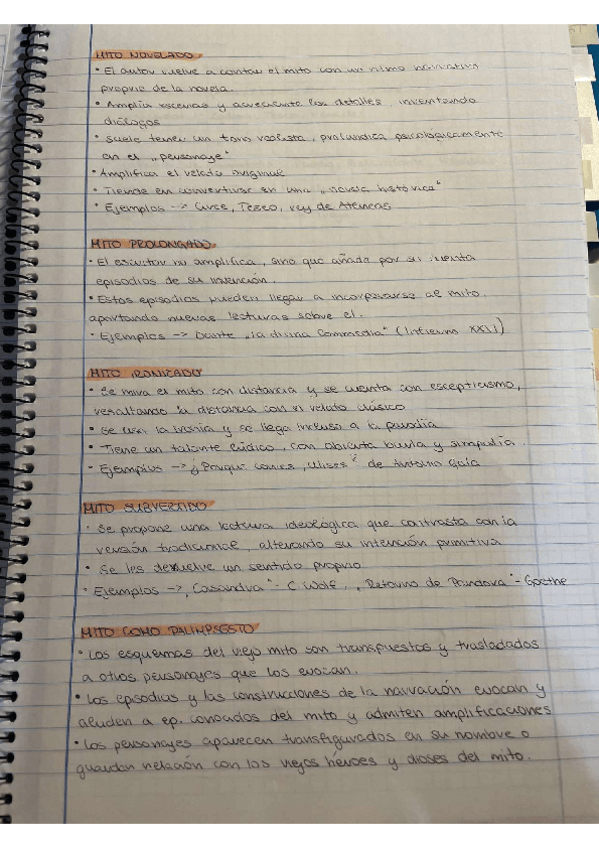 MITO NOVELADO
• El autor vuelve a contar el mito con un ritmo narrativo
propio de la novela.
• Amplía escenas y acrecienta los detalles inventando
diálogos
• Suele tener un tono realista, profundiza psicológicamente
en el „personaje"
• Amplifica el relato original
• Tiende en convertirse en una „novela histórica"
• Ejemplos --> Circe, Teseo, rey de Atenas
MITO PROLONGADO
• El escritor no amplifica, sino que añade por su cuenta
episodios de su invención.
• Estos episodios pueden llegar a incorporarse al mito.
aportando nuevas lecturas sobre el.
• Ejemplos -> Dante „la divina Commedia" (Infierno XXVI)
MITO IRONIZADO
• Se mira el mito con distancia y se cuenta con escepticismo,
resaltando la distancia con el relato clásico
• Se usa la ironía y se llega incluso a la parodia
• Tiene un talante lúdico, con abierta burla y simpatía.
• Ejemplos --> ¿Porqué corres, Ulises? de Antonio Gala
MITO SUBVERTIDO
• Se propone una lectura ideológica que contrasta con la
versión tradicional, alterando su intención primitiva
• Se les devuelve un sentido propio
• Ejemplos --> „Casandra" - C Wolf, „Retorno de Pandora" - Goethe
MITO COMO PALIMPSESTO
• Los esquemas del viejo mito son transpuestos y trasladados
a otros personajes que los evocan.
• Los episodios y las construcciones de la narración evocan y
aluden a ep. conocidos del mito y admiten amplificaciones
• Los personajes aparecen transfigurados en su nombre o
guardan relación con los viejos héroes y dioses del mito.